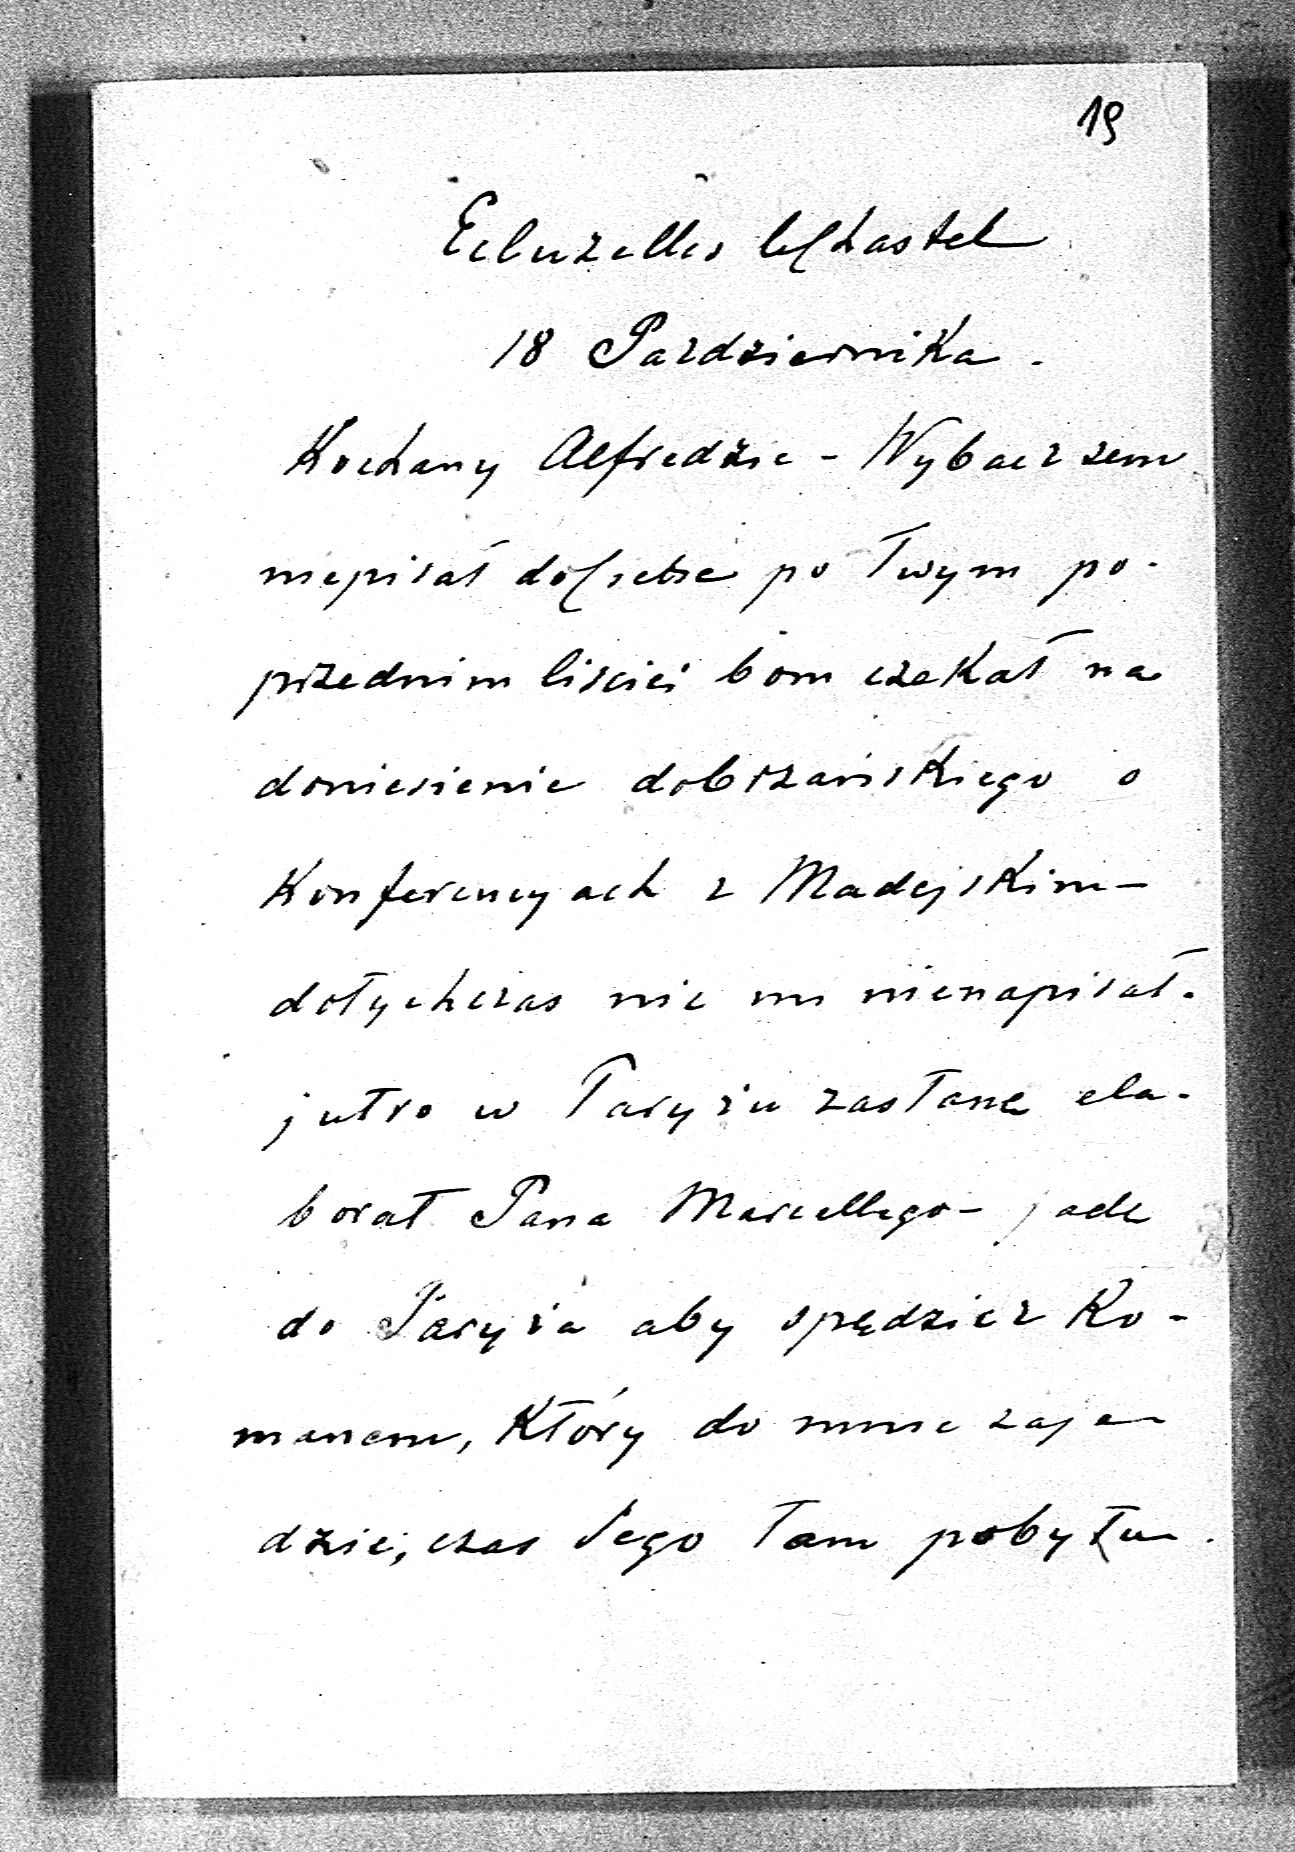 19
Ecluzelles le Chastel
18 Pazdziernika.
Kochany Alfredzie – Wybacz zem
niepisał do Ciebie po Twym po-
przednim liscie; bom czekał na
doniesienie dobrzańskiego o
Konferencyach z Madejskim –
dotychczas nic mi nienapisał.
jutro w Paryżu zastanę ela-
borat Pana Marcellego – jadę
do Paryża aby spędzić z Ro-
manem, Który do mnie zaje-
dzie, czas Jego tam pobytu.